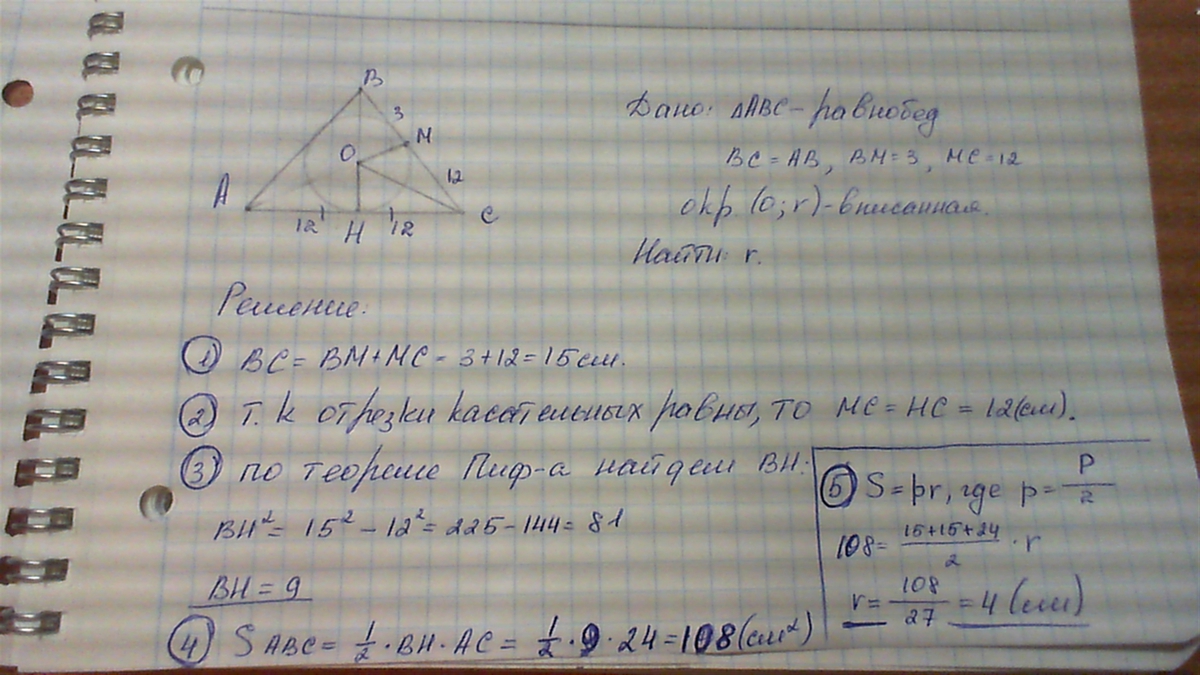 B
3
M
O
12
A
C
12 H 12
Дано: ΔABC - равнобед
BC = AB, BM = 3, MC = 12
окр (O; r) - вписанная.
Найти: r.
Решение:
1) BC = BM + MC = 3 + 12 = 15 см.
2) Т. к отрезки касательных равны, то MC = HC = 12 (см).
3) по теореме Пиф-а найдем BH:
BH² = 15² - 12² = 225 - 144 = 81
BH = 9
4) S ABC = 1/2 · BH · AC = 1/2 · 9 · 24 = 108 (см²)
5) S = pr, где p = P/2
108 = (15+15+24)/2 · r
r = 108/27 = 4 (см)